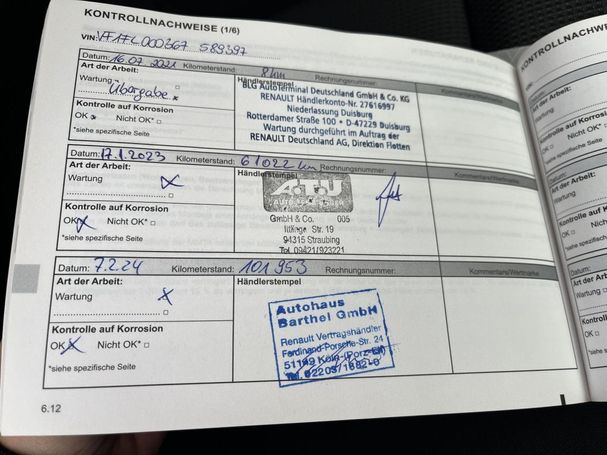 KONTROLLNACHWEISE (1/6)
VIN: VF17L000367 589397
Datum: 16.07.2021 Kilometerstand: 8 km Rechnungsnummer:
Art der Arbeit: Händlerstempel
Wartung
Übergabe x
Kontrolle auf Korrosion
OK x Nicht OK* □
*siehe spezifische Seite
BLG AutoTerminal Deutschland GmbH & Co. KG
RENAULT Händlerkonto-Nr. 27616997
Niederlassung Duisburg
Rotterdamer Straße 100 • D-47229 Duisburg
Wartung durchgeführt im Auftrag der
RENAULT Deutschland AG, Direktion Flotten
Datum: 17.1.2023 Kilometerstand: 61022 km Rechnungsnummer:
Art der Arbeit: Händlerstempel Kommentare/Wertmarke
Wartung x
□
Kontrolle auf Korrosion
OK x Nicht OK* □
*siehe spezifische Seite
A.T.U
GmbH & Co. 005
Ittlinger Str. 19
94315 Straubing
Tel. 09421/923221
Datum: 7.2.24 Kilometerstand: 101953 Rechnungsnummer: Kommentare/Wertmarke
Art der Arbeit: Händlerstempel
Wartung x
□
Kontrolle auf Korrosion
OK x Nicht OK* □
*siehe spezifische Seite
Autohaus
Barthel GmbH
Renault Vertragshändler
Ferdinand-Porsche-Str. 24
51149 Köln-(Porz-Eil)
Tel. 02203/1682-0
6.12
KONTROLLNACHWEISE
VIN:
Datum:
Art der Arbeit:
Wartung
Kontrolle auf Korrosion
OK □ Nicht OK*
*siehe spezifische Seite
Datum:
Art der Arbeit:
Wartung
Kontrolle auf
OK □
*siehe